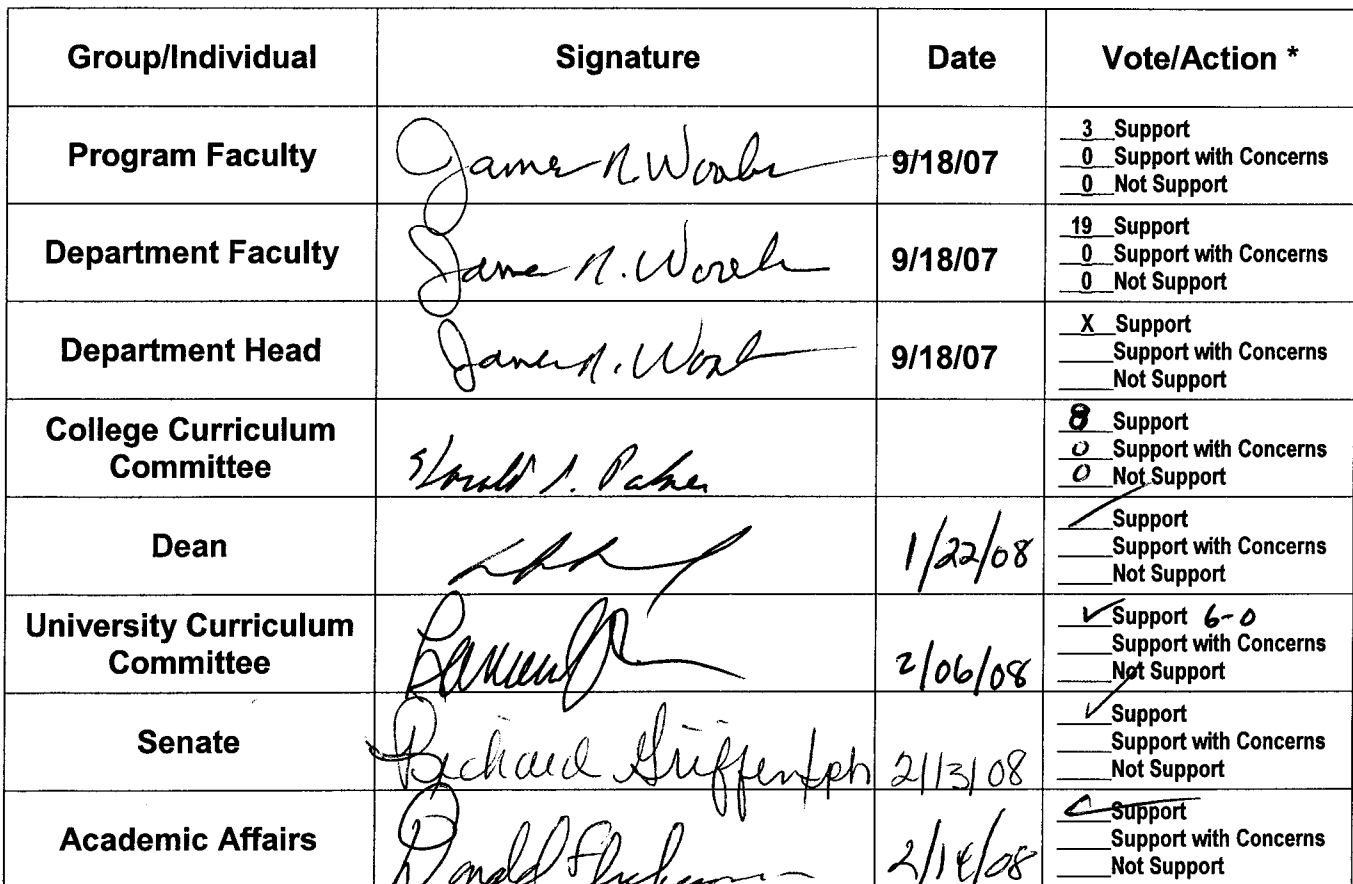 Group/Individual Signature Date Vote/Action *
Program Faculty James N. 9/18/07
3 Support
0 Support with Concerns
0 Not Support
Department Faculty James N. 9/18/07
19 Support
0 Support with Concerns
0 Not Support
Department Head James N. 9/18/07
X Support
Support with Concerns
Not Support
College Curriculum
Committee
8 Support
0 Support with Concerns
0 Not Support
Dean 1/22/08
Support
Support with Concerns
Not Support
University Curriculum
Committee 2/06/08
✓ Support 6-0
Support with Concerns
Not Support
Senate Richard Griffin/ph 2/13/08
✓ Support
Support with Concerns
Not Support
Academic Affairs Donald 2/14/08
Support
Support with Concerns
Not Support